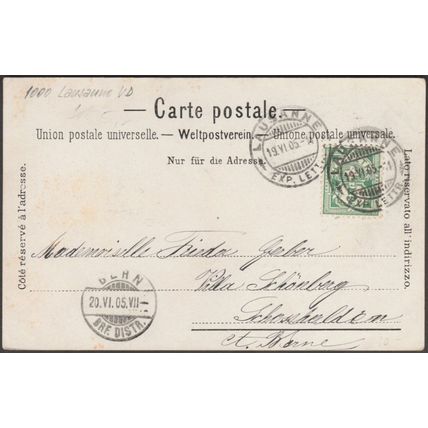 1000 Lausanne VD
Carte postale.
Union postale universelle. — Weltpostverein. — Unione postale universale.
Nur für die Adresse.
Côté réservé à l'adresse.
Lato riservato all'indirizzo.
LAUSANNE
19.VI.05.-1
EXP. LETTR.
LAUSANNE
19.VI.05.-1
EXP. LETTR.
Mademoiselle Frieda Gerber
Villa Schönberg
Schosshalden
BERN
20.VI.05.VII-
BRF. DISTR.